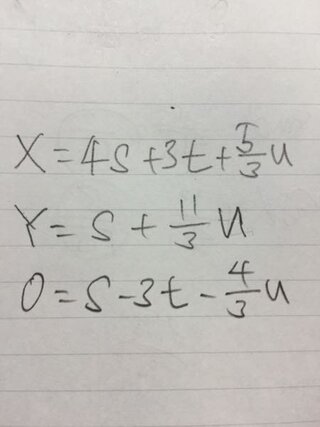 X=4s+3t+5/3u
Y=s+11/3u
0=s-3t-4/3u